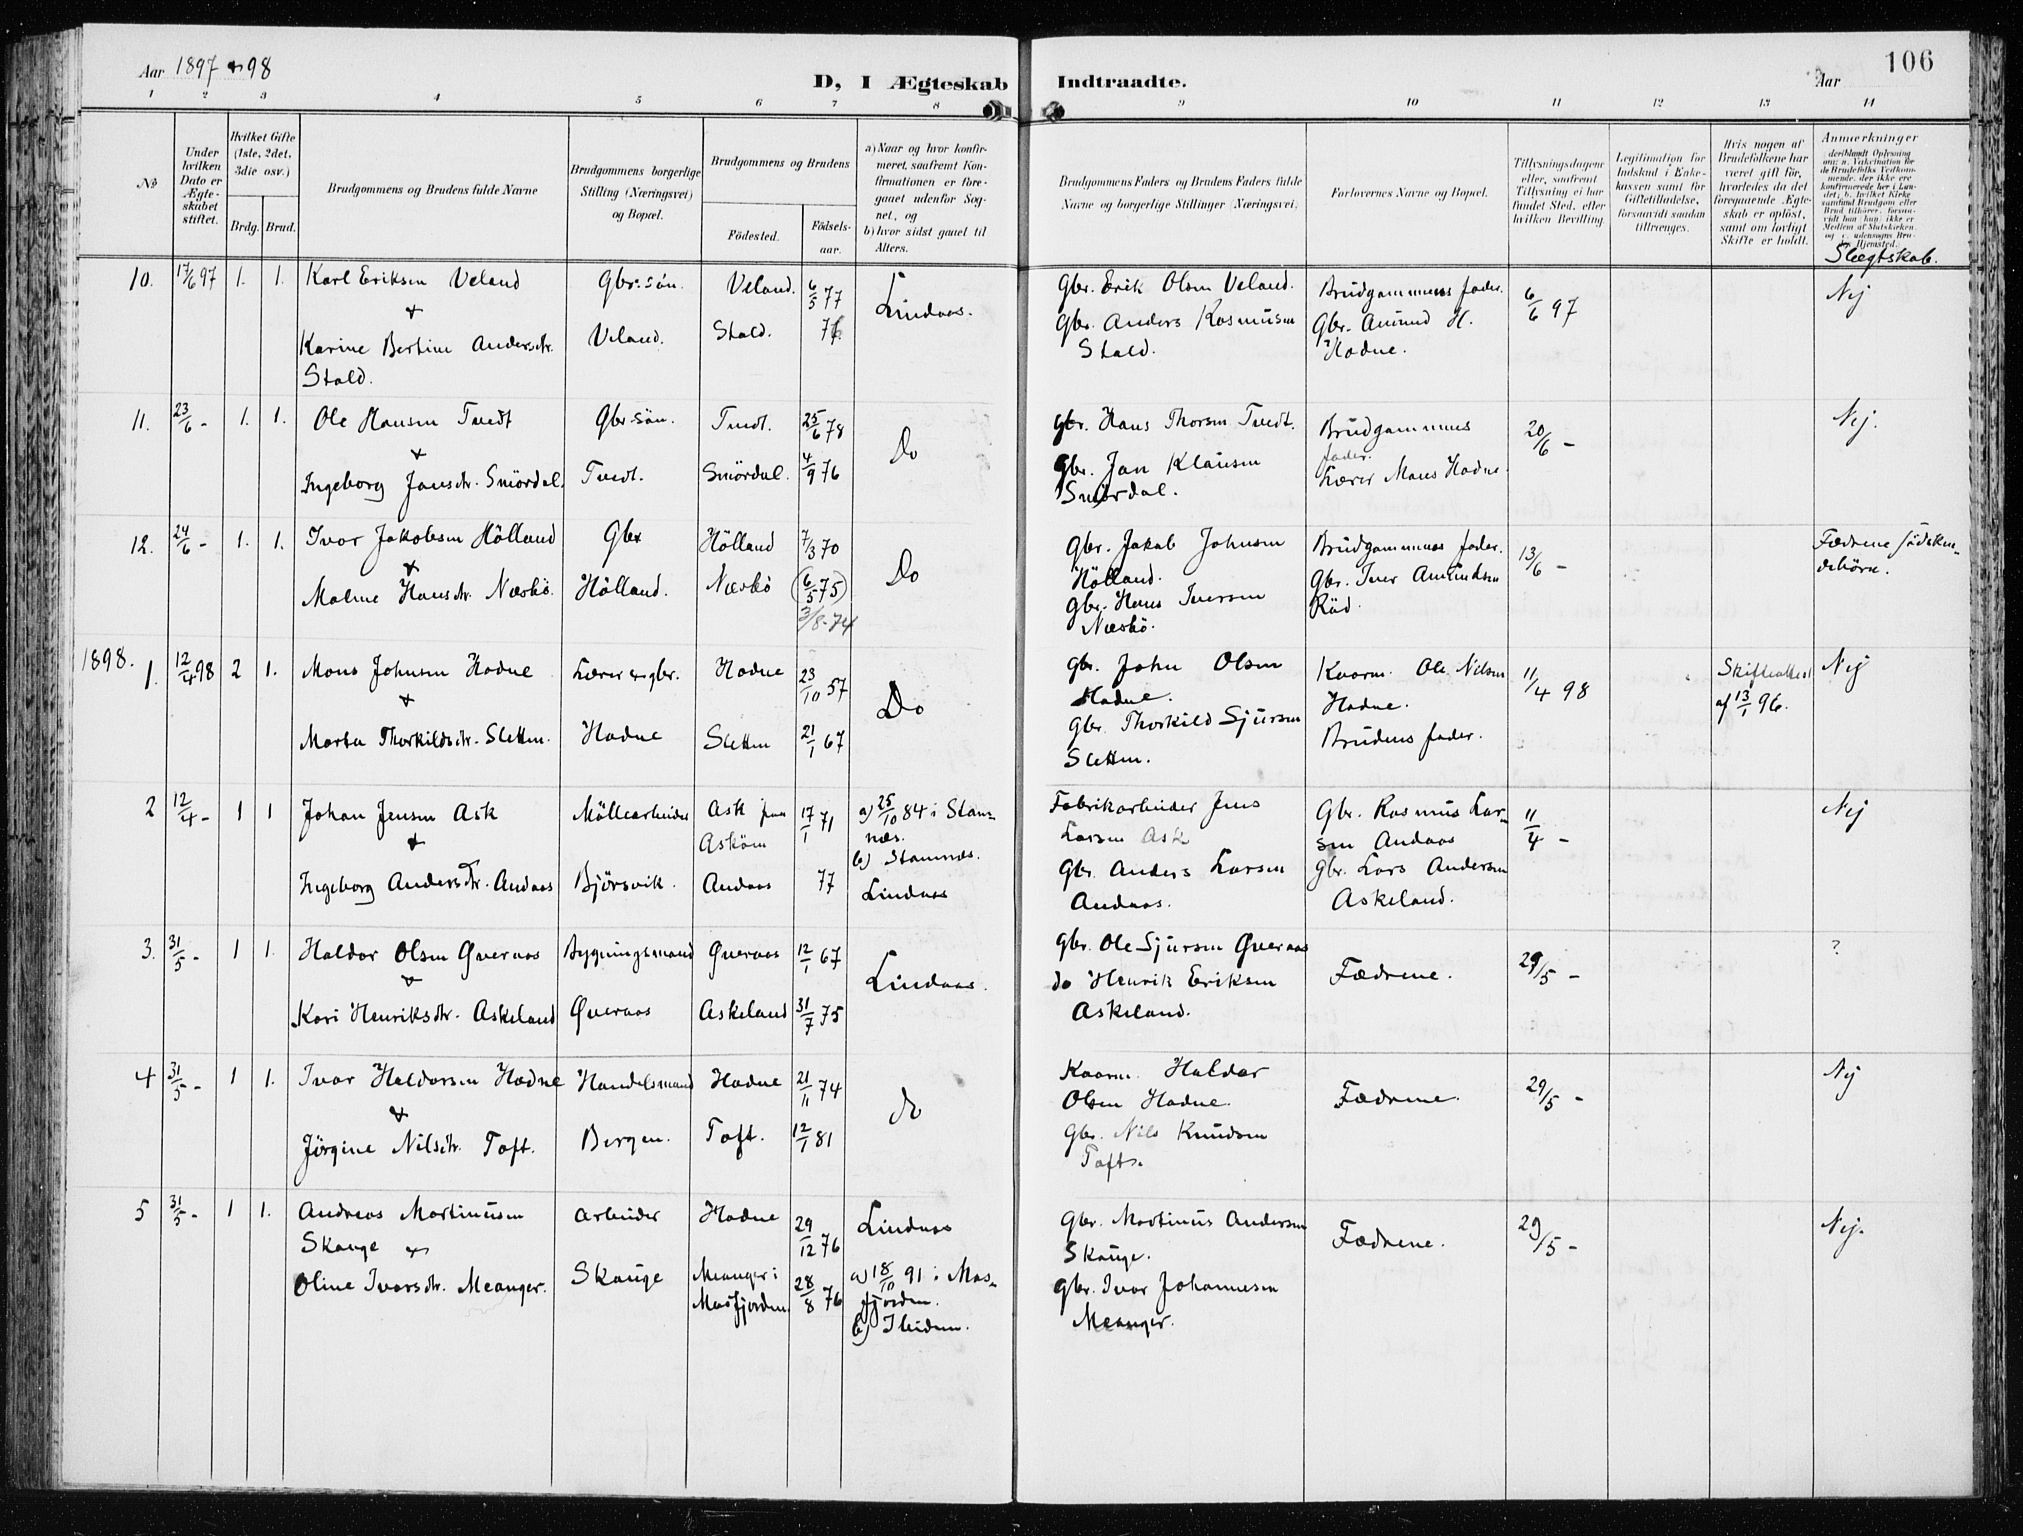 Aar 1897 & 98
D, I Ægteskab Indtraadte.
Aar
106
1 2 3 4 5 6 7 8 9 10 11 12 13 14
No
Under hvilken Dato er Ægteskabet stiftet.
Hvilket Gifte (1ste, 2det, 3die osv.)
Brdg. Brud.
Brudgommens og Brudens fulde Navne
Brudgommens borgerlige Stilling (Næringsvei) og Bopæl.
Brudgommens og Brudens
Fødested.
Fødsels-aar.
a) Naar og hvor konfirmeret, saafremt Konfirmationen er foregaaet udenfor Sognet, og
b) hvor sidst gaaet til Alters.
Brudgommens Faders og Brudens Faders fulde Navne og borgerlige Stillinger (Næringsvei)
Forlovernes Navne og Bopæl.
Tillysningsdagene eller, saafremt Tillysning ei har fundet Sted, efter hvilken Bevilling.
Legitimation for Indskud i Enkekassen samt for Giftetilladelse, forsaavidt saadan tiltrænges.
Hvis nogen af Brudefolkene har været gift før, hvorledes da det foregaaende Ægteskab er opløst, samt om lovligt Skifte er holdt.
Anmerkninger
Slægtskab.
10. 17/6 97 1. 1. Karl Eriksen Veland Gbr.søn. Veland. 6/5 77 Lindaas. Gbr. Erik Olsen Veland. Brudgommens fader. 6/6 97 Nej
&
Karine Bertine Andersdtr. Veland. Stald. 76 Gbr. Anders Rasmusen Gbr. Amund H.
Stald. Stald. Hodne.
11. 23/6 - 1. 1. Ole Hansen Tvedt Gbr.søn. Tvedt. 25/6 78 Do Gbr. Hans Thorsen Tvedt. Brudgommens 20/6 - Nej.
& fader.
Ingeborg Jansdtr. Smördal. Tvedt. Smördal. 4/9 76 Gbr. Jan Klausen Lærer Mons Hodne
Smördal.
12. 24/6 - 1. 1. Ivar Jakobsen Hölland Gbr Hölland 7/3 70 Do Gbr. Jakob Johnsen Brudgommens fader. 13/6 - Fædrene södsken-
& Hölland. Gbr. Iver Amundsen debörn.
Malene Hansdtr. Næsbö. Hölland. Næsbö (6/5 75) Gbr. Hans Iversen Röd.
3/8-74 Næsbö.
1898.
1. 12/4 98 2 1. Mons Johnsen Hodne Lærer & gbr. Hodne 23/10 57 Do Gbr. John Olsen Kaarm. Ole Nilsen 11/4 98 Skifteattest Nej
& Hodne. Hodne. af 13/1 96.
Marta Thorkildsdtr. Sletten. Hodne Sletten 21/1 67 Gbr. Thorkild Sjursen Brudens fader.
Sletten.
2 12/4 - 1 1 Johan Jensen Ask Möllearbeider Ask paa 17/1 71 a) 25/10 84 i Stam- Fabrikarbeider Jens Gbr. Rasmus Lar- 11/4 - Nej
& Asköen næs. Larsen Ask sen Andaas
b) Stamnæs.
Ingeborg Andersdtr. Andaas Bjørsvik. Andaas 77 Lindaas Gbr. Anders Larsen Gbr. Lars Andersen
Andaas. Askeland.
3. 31/5 - 1 1. Haldor Olsen Øveraas Bygningsmand Øveraas 12/1 67 Lindaas. Gbr. Ole Sjursen Øveraas Fædrene. 29/5 - ?
&
Kari Henriksdtr. Askeland Øveraas Askeland 31/7 75 do Henrik Eriksen
Askeland.
4 31/5 - 1 1. Ivar Haldorsen Hodne Handelsmand Hodne 21/11 74 do Kaarm. Haldor Fædrene. 29/5 - Nej
& Olsen Hodne.
Jörgine Nilsdtr. Toft. Bergen. Toft. 12/1 81 Gbr. Nils Knudsen
Toft.
5 31/5 - 1 1. Andreas Martinusen Arbeider Hodne 29/12 76 Lindaas Gbr. Martinus Andersen Fædrene. 29/5 - Nej.
Skauge & Skauge.
Oline Ivarsdtr. Meanger. Skauge Meanger i 28/8 76 a) 18/10 91 i Mas- Gbr. Ivar Johannesen
Masfjorden fjorden. Meanger.
b) Ibidem.